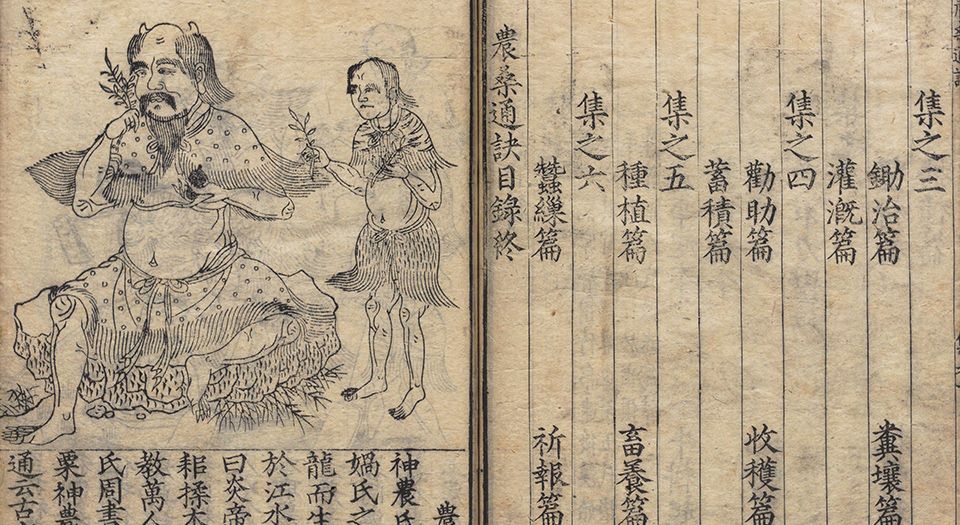 集之三
鋤治篇 糞壤篇
灌漑篇
集之四
勸助篇 收穫篇
蓄積篇
集之五
種植篇 畜養篇
集之六
蠶繅篇 祈報篇
農桑通訣目錄終
農
神農氏
媧氏之
龍而生
於江水
曰炎帝
耜揉木
教萬人
氏周書
粟神農
通云古